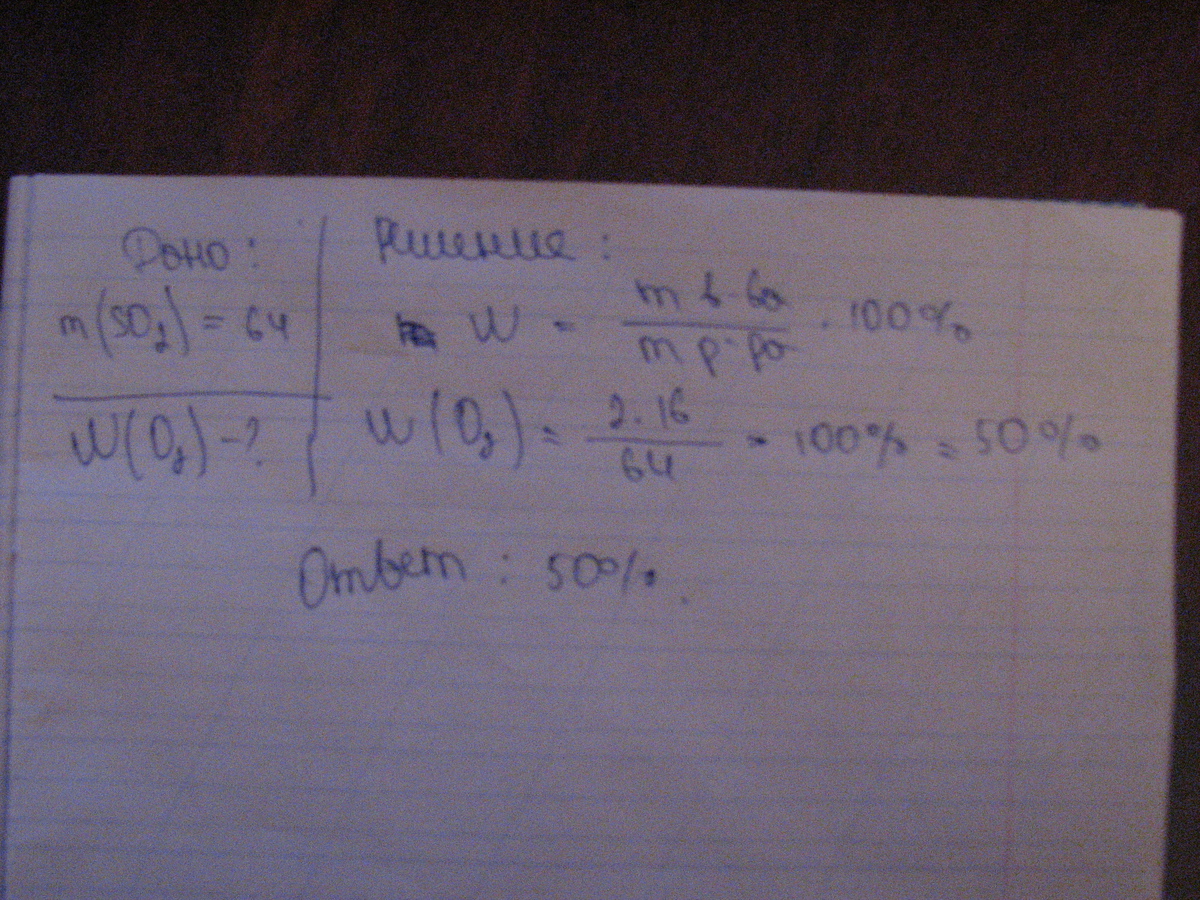 Дано:
m(SO2) = 64
W(O2) - ?
Решение:
W = m в-ва / m р-ра · 100%
W(O2) = 2·16 / 64 · 100% = 50%
Ответ: 50%.